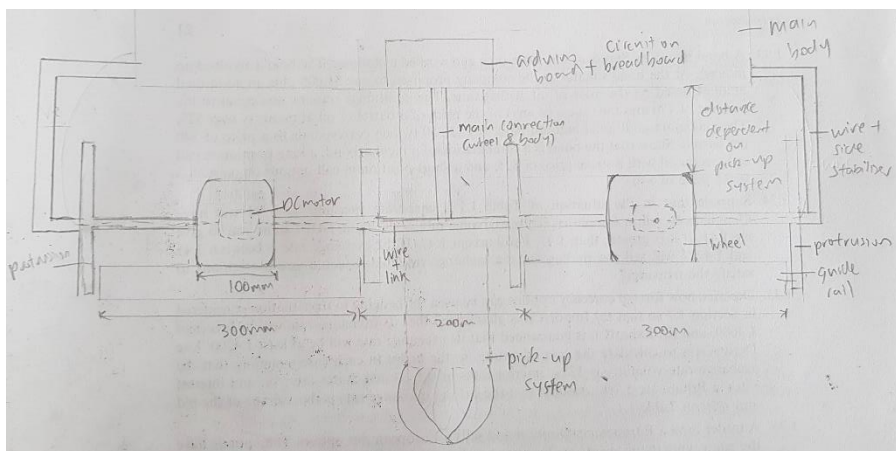 main
body
arduino
board +
circuit on
breadboard
main connection
(wheel & body)
distance
dependent
on
pick-up
system
wire +
side
stabiliser
DC motor
wire
+
link
wheel
protrusion
guide
rail
100mm
300mm
200m
300m
pick-up
system